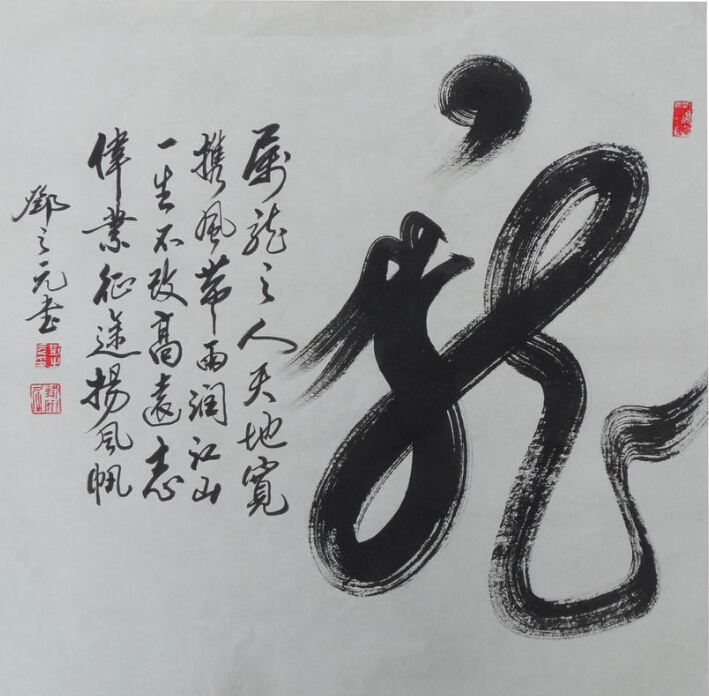 龙
属龙之人天地宽
携风带雨润江山
一生不改高远志
偉業征途揚风帆
鄧之元书